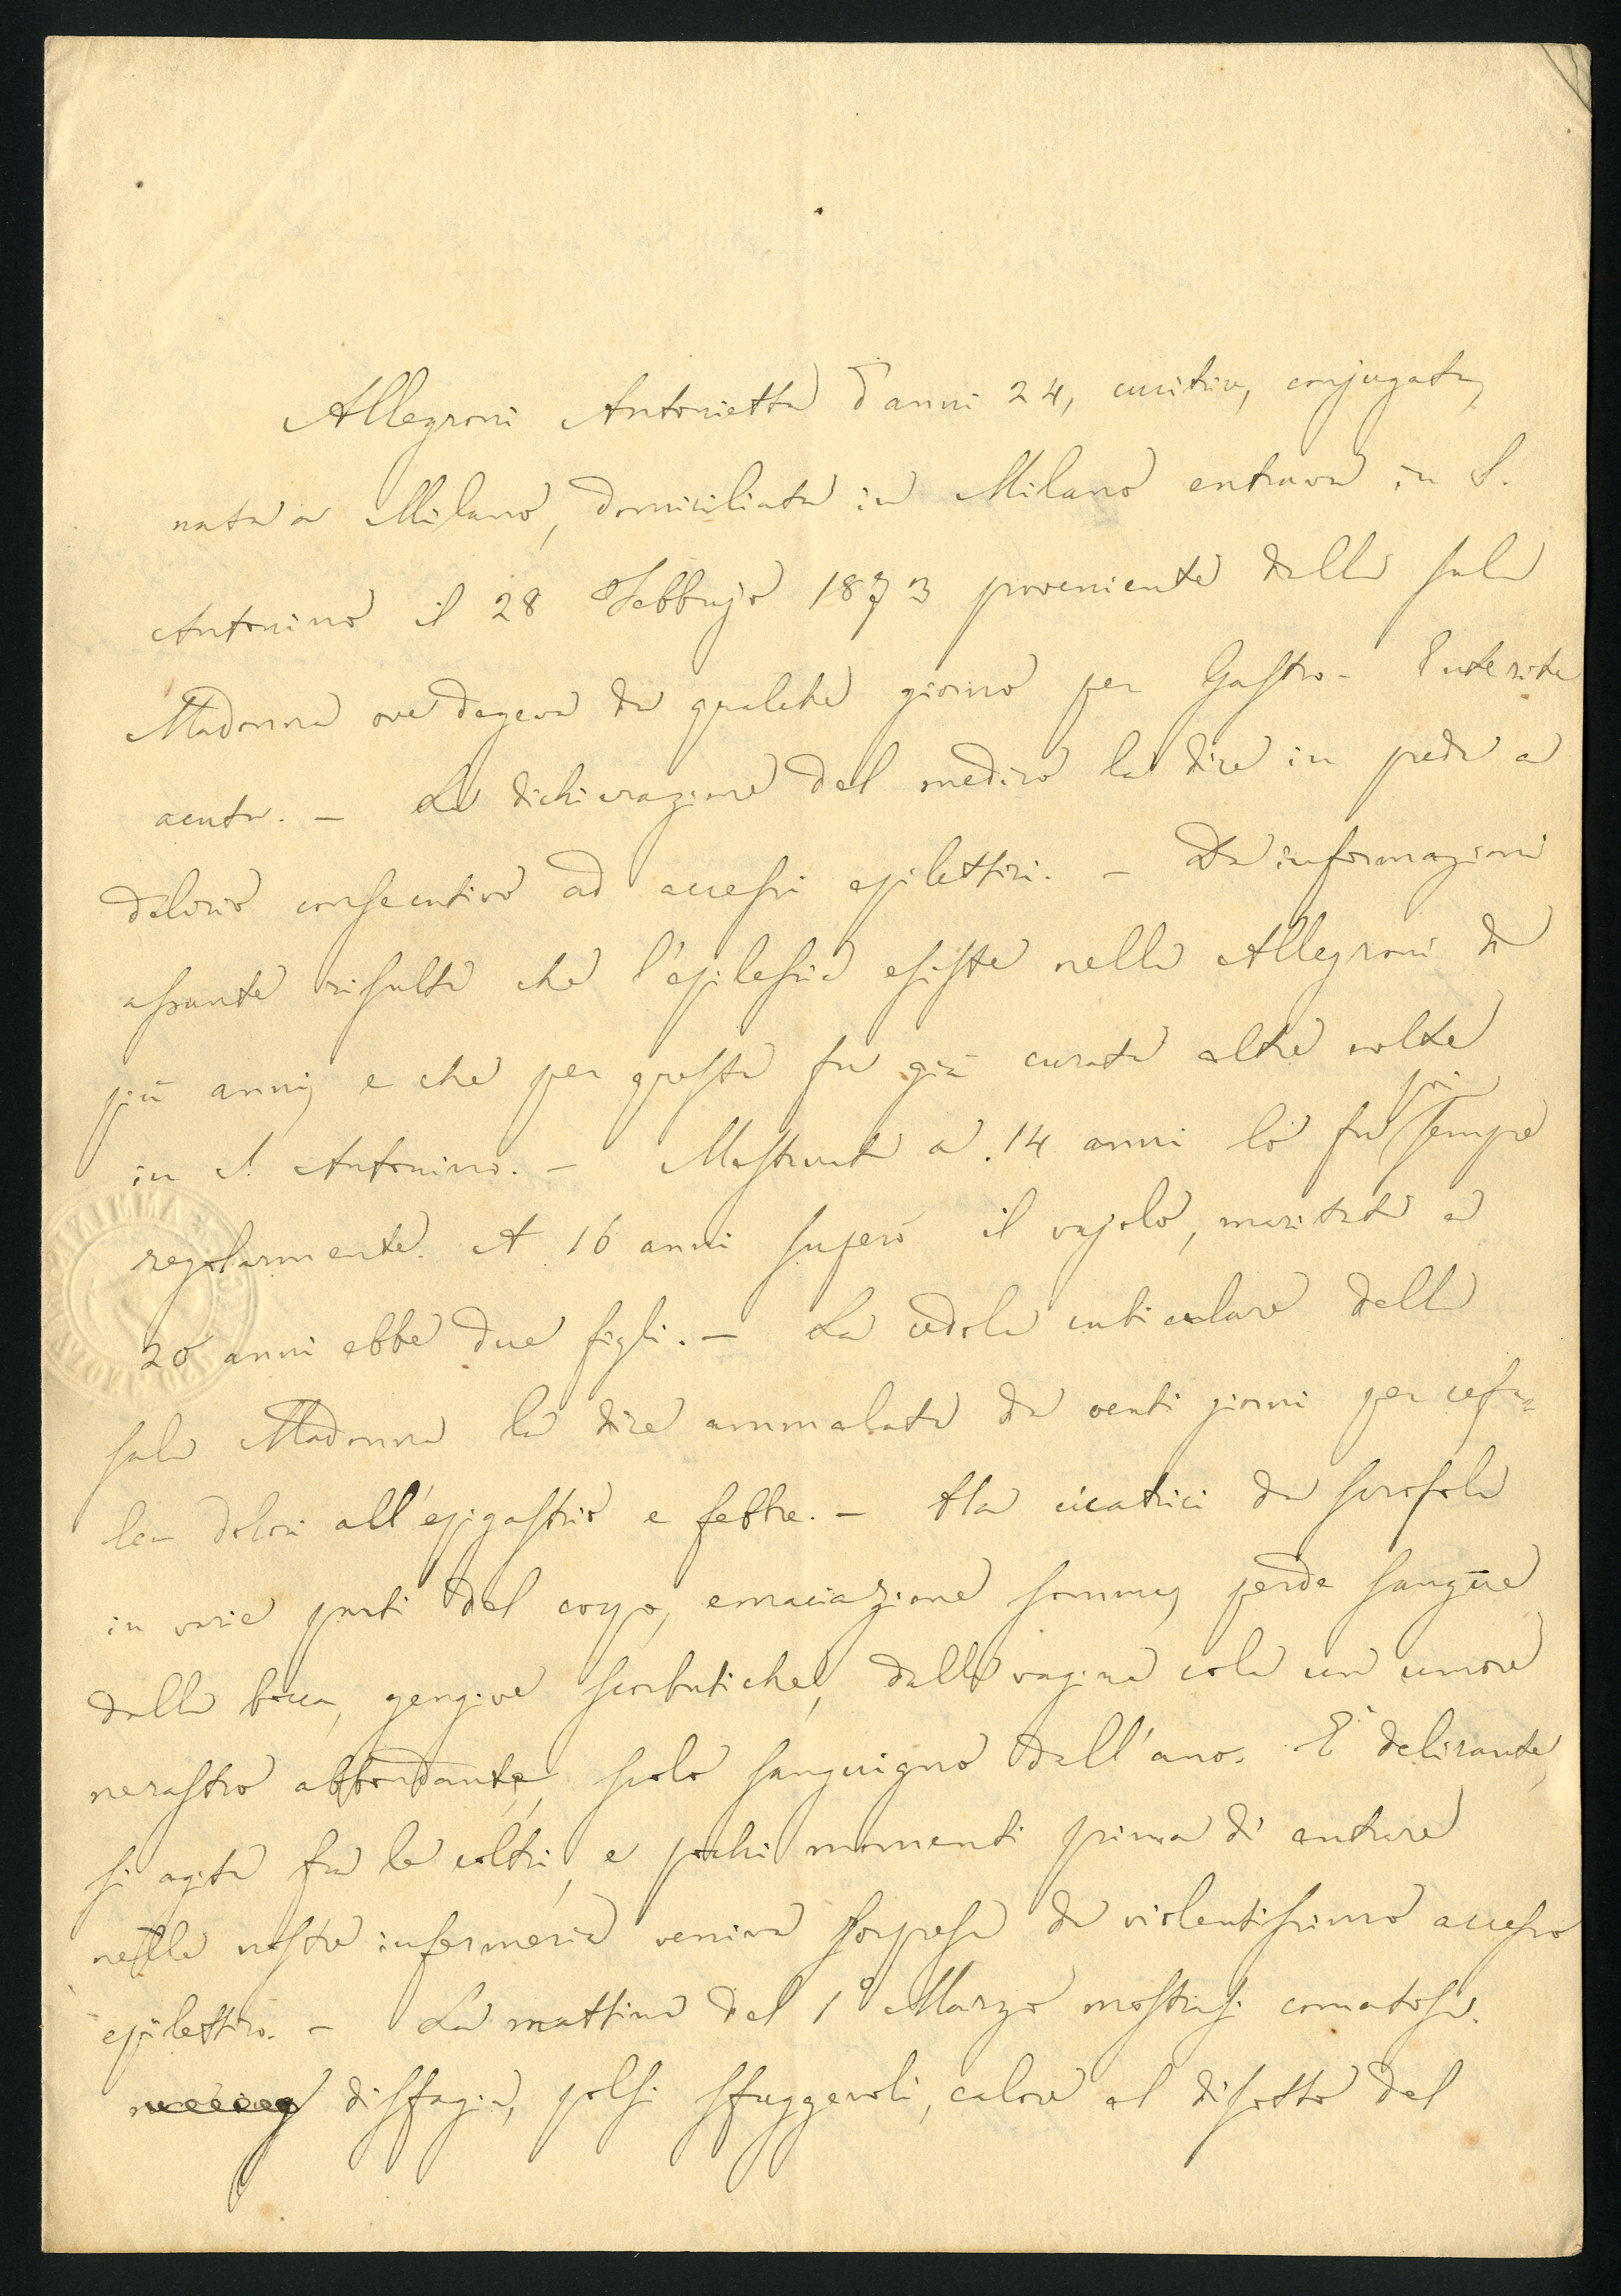 Allegroni Antonietta d'anni 24, cucitrice, conjugata,
nata a Milano, domiciliata in Milano entrava in S.
Antonino il 28 Febbrajo 1873 proveniente dalla sala
Madonna ove degeva da qualche giorno per Gastro-Enterite
acuta. — La dichiarazione del medico la dice in preda a
delirio consecutivo ad accessi epilettici. — Da informazioni
assunte risulta che l'epilessia esiste nella Allegroni da
più anni, e che per questa fu già curata altre volte
in S. Antonino. — Mestruata a 14 anni lo fu poi sempre
regolarmente. A 16 anni superò il vajolo, maritata a
20 anni ebbe due figli. — La cedola cubiculare della
sala Madonna la dice ammalata da venti giorni per cefa-
lea dolori all'epigastrio e febbre. — Ha cicatrici da scrofola
in varie parti del corpo, emaciazione somma, perde sangue
dalla bocca, gengive scorbutiche, dalla vagina cola un umore
nerastro abbondante, scolo sanguigno dall'ano. E' delirante,
si agita fra le coltri, e pochi momenti prima di entrare
nella nostra infermeria veniva sorpresa da violentissimo accesso
epilettico. — La mattina del 1° Marzo mostrasi comatosa.
disfagia, polsi sfuggevoli, calore al disotto del